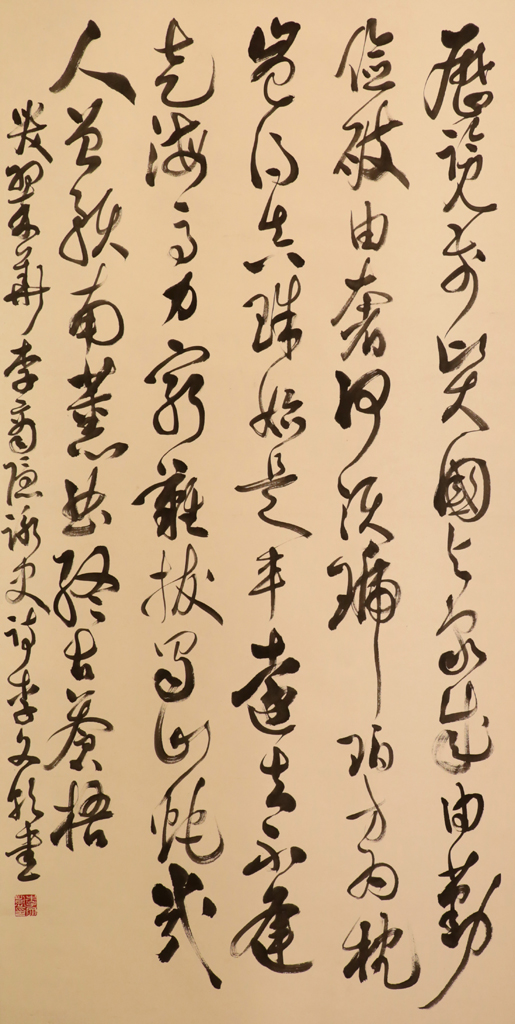 歷覽前賢國與家成由勤
儉破由奢何須琥珀方為枕
豈得真珠始是車運去不逢
青海馬力窮難拔蜀山蛇幾
人曾預南薰曲終古蒼梧
哭翠華 李商隱詠史詩 李文 書